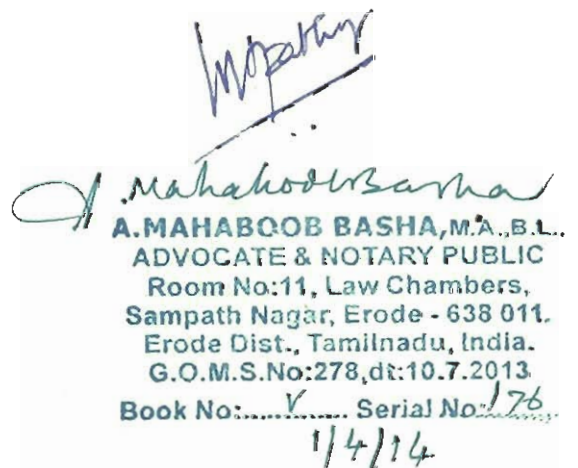 A. Mahaboob Basha
A.MAHABOOB BASHA,M.A.,B.L.,
ADVOCATE & NOTARY PUBLIC
Room No:11, Law Chambers,
Sampath Nagar, Erode - 638 011.
Erode Dist., Tamilnadu, India.
G.O.M.S.No:278,dt:10.7.2013
Book No:......V....... Serial No:176
1/4/14